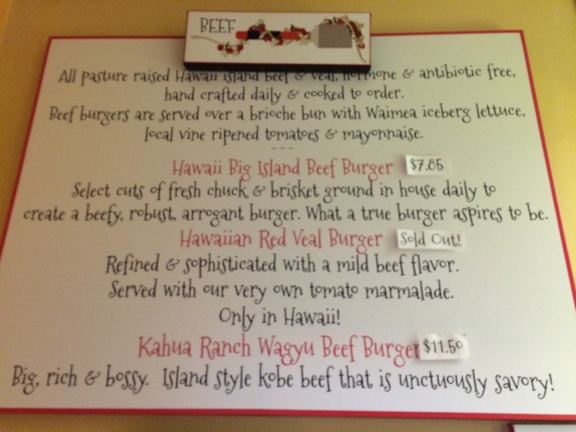 BEEF
All pasture raised Hawaii island beef & veal, hormone & antibiotic free,
hand crafted daily & cooked to order.
Beef burgers are served over a brioche bun with Waimea iceberg lettuce,
local vine ripened tomatoes & mayonnaise.
---
Hawaii Big Island Beef Burger $7.85
Select cuts of fresh chuck & brisket ground in house daily to
create a beefy, robust, arrogant burger. What a true burger aspires to be.
Hawaiian Red Veal Burger Sold Out!
Refined & sophisticated with a mild beef flavor.
Served with our very own tomato marmalade.
Only in Hawaii!
Kahua Ranch Wagyu Beef Burger $11.50
Big, rich & bossy. Island style kobe beef that is unctuously savory!